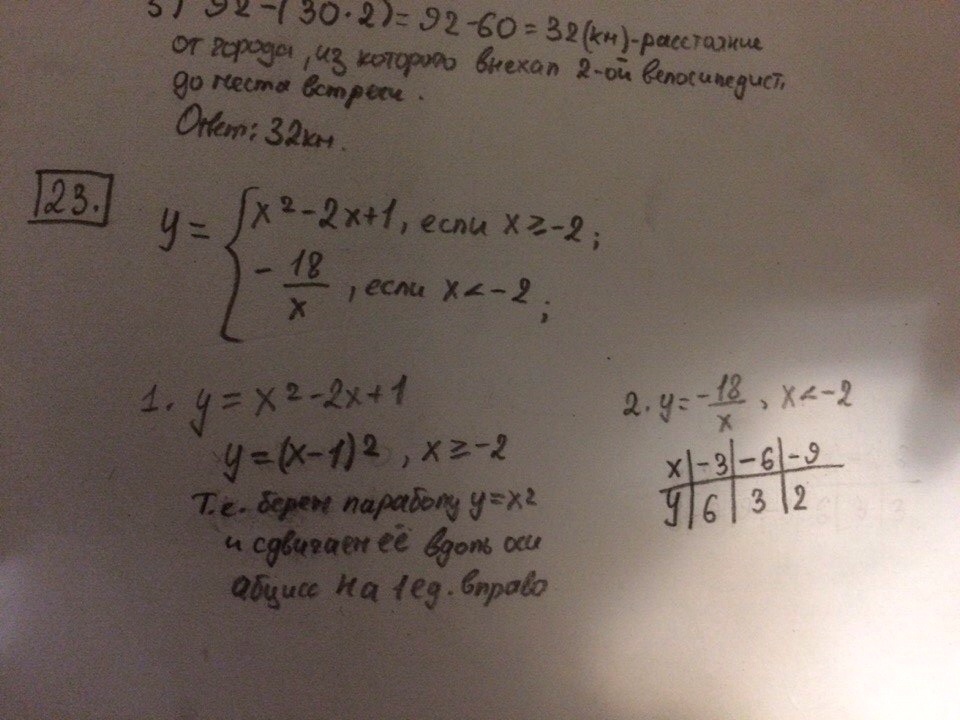 3) 92-(30·2)=92-60=32(км)-расстояние
от города, из которого выехал 2-ой велосипедист,
до места встречи.
Ответ: 32км.
23.
y = { x²-2x+1, если x≥-2;
-18/x, если x<-2;
1. y = x²-2x+1
y=(x-1)², x≥-2
Т.е. берем параболу y=x²
и сдвигаем её вдоль оси
абцисс на 1 ед. вправо
2. y=-18/x, x<-2
x|-3|-6|-9
y|6|3|2